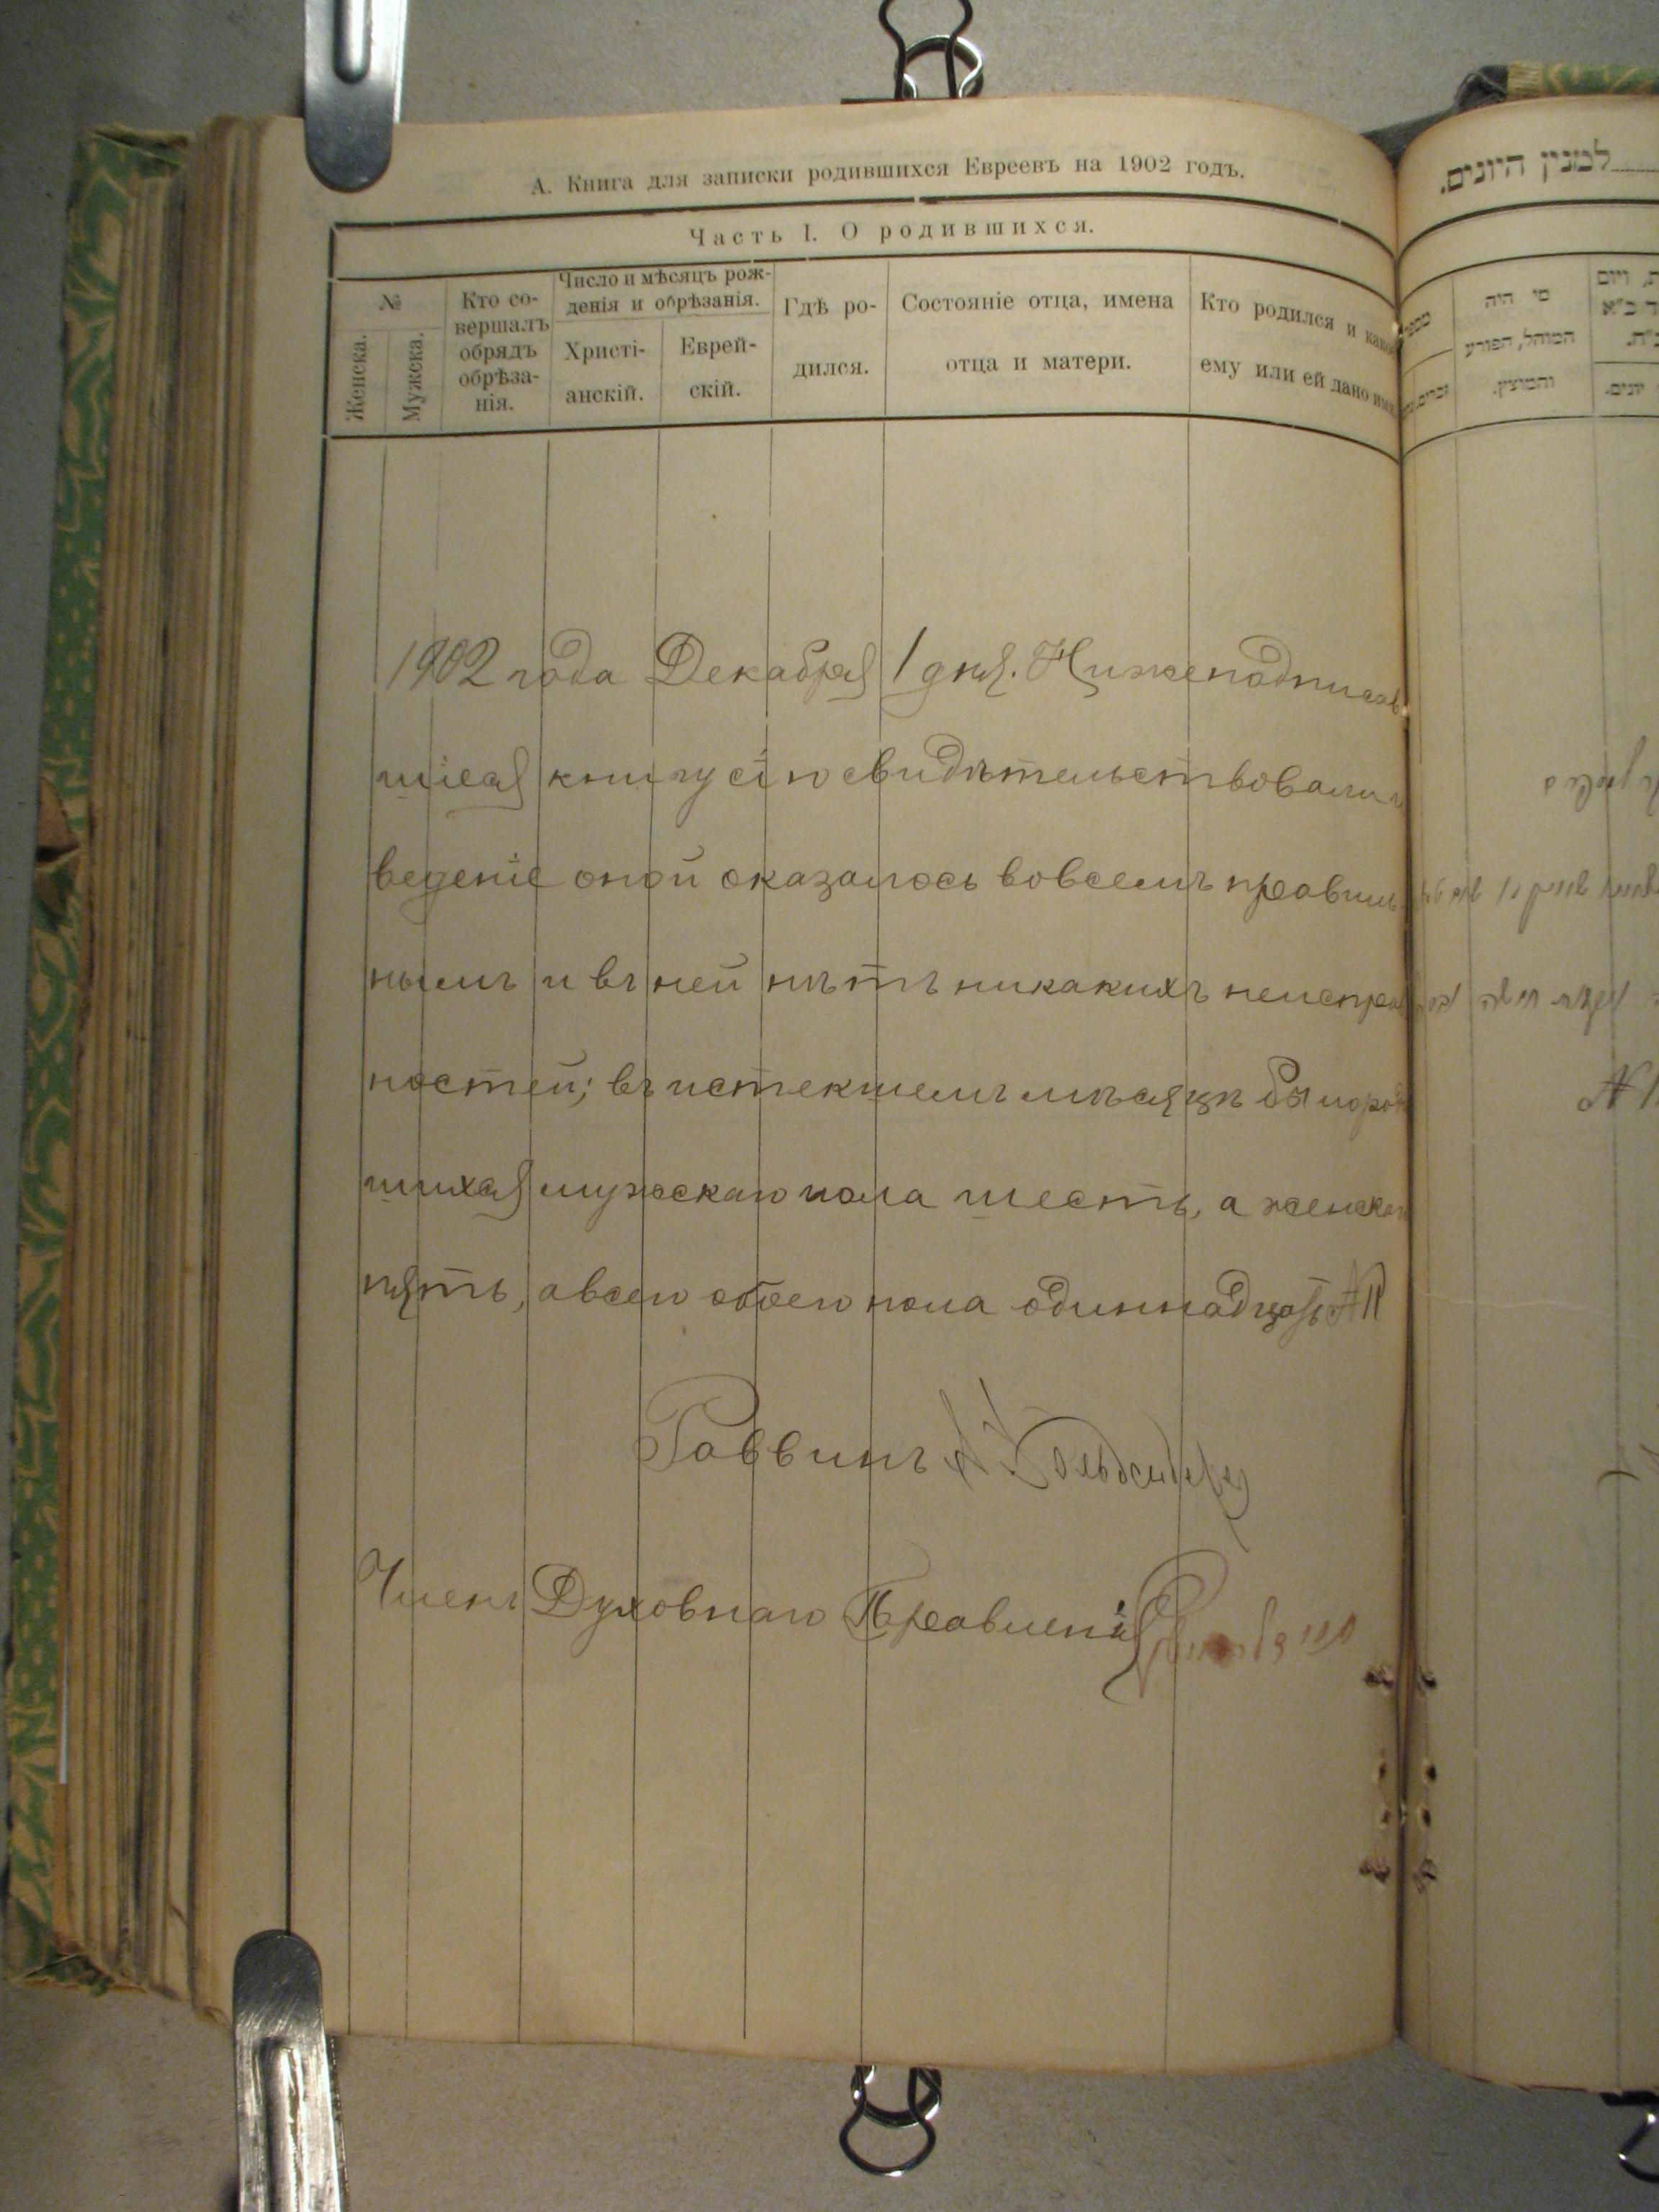 А. Книга для записки родившихся Евреевъ на 1902 годъ.
Часть I. О родившихся.
№
Женска.
Мужска.
Кто со-
вершалъ
обрядъ
обрѣза-
нія.
Число и мѣсяцъ рож-
денія и обрѣзанія.
Христі-
анскій.
Еврей-
скій.
Гдѣ ро-
дился.
Состояніе отца, имена
отца и матери.
Кто родился и какое
ему или ей дано имя.
1902 года Декабря 1 дня. Нижеподписав
шіеся книгу сію свидѣтельствовали и
веденіе оной оказалось вовсемъ правиль
нымъ и въ ней нѣтъ никакихъ неисправ
ностей; въ истекшемъ мѣсяцѣ было родив
шихся мужскаго пола шесть, а женскаго
пять, а всего обоего пола одиннадцать № 11
Раввинъ
Членъ Духовнаго Правленія
למנין היונים.
מי היה
המוהל, הפורע
והמוצץ.
יונים.